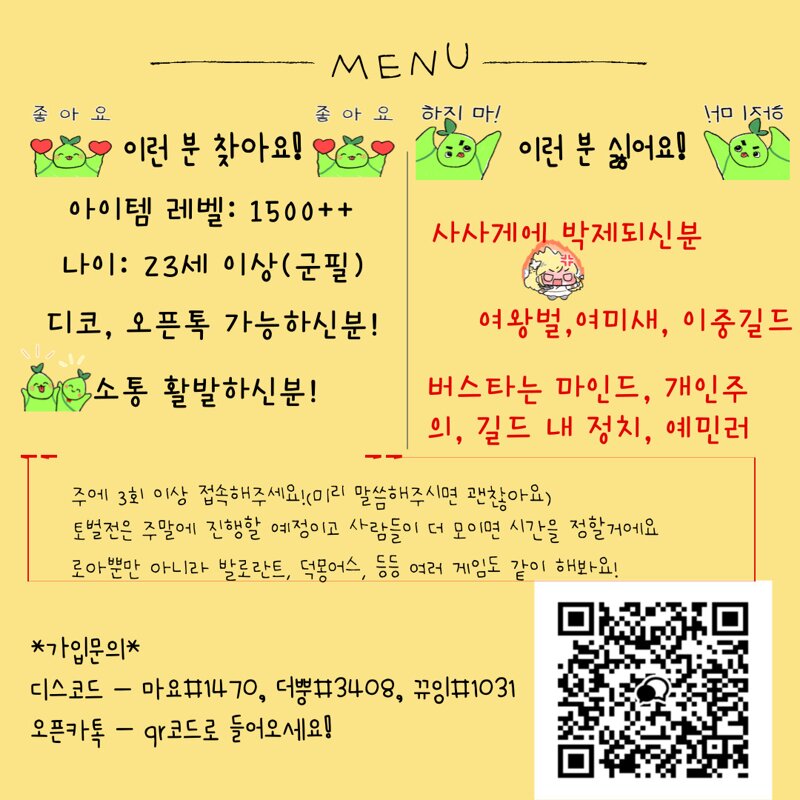 MENU
좋아요 좋아요
이런 분 찾아요!
아이템 레벨: 1500++
나이: 23세 이상(군필)
디코, 오픈톡 가능하신분!
소통 활발하신분!
하지 마! 하지 마!
이런 분 싫어요!
사사게에 박제되신분
여왕벌,여미새, 이중길드
버스타는 마인드, 개인주
의, 길드 내 정치, 예민러
주에 3회 이상 접속해주세요!(미리 말씀해주시면 괜찮아요)
토벌전은 주말에 진행할 예정이고 사람들이 더 모이면 시간을 정할거에요
로아뿐만 아니라 발로란트, 덕몽어스, 등등 여러 게임도 같이 해봐요!
*가입문의*
디스코드 - 마요#1470, 더뿅#3408, 뀨잉#1031
오픈카톡 - qr코드로 들어오세요!